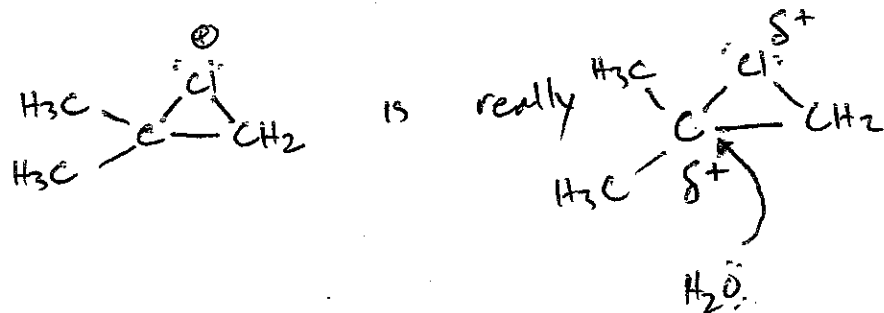 ⊕
Cl
H3C
C
CH2
H3C
is really
δ+
H3C
Cl
C
CH2
H3C
δ+
H2O